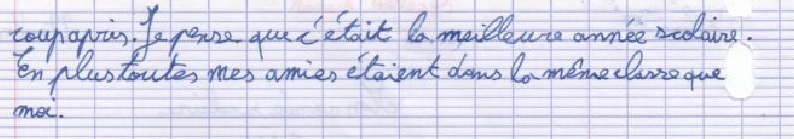 coup apris. Je pense que c'était la meilleure année scolaire.
En plus toutes mes amies étaient dans la même classe que
moi.